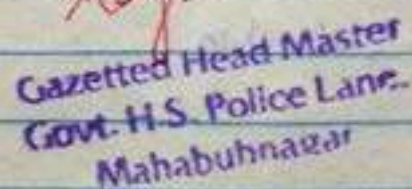 Gazetted Head Master
Govt. H.S. Police Lane.
Mahabubnagar